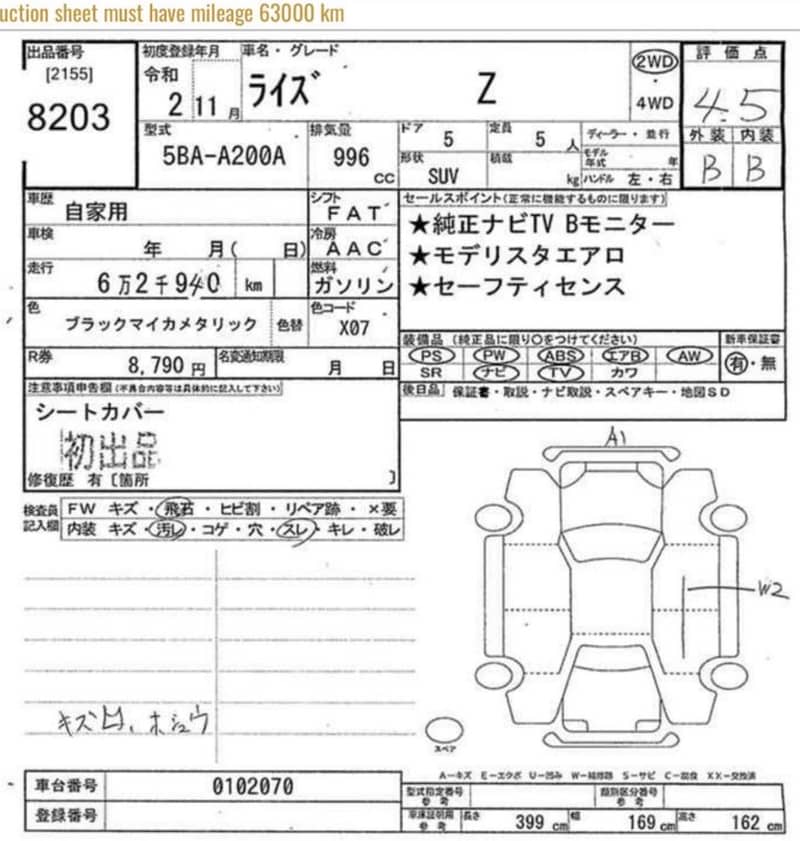 uction sheet must have mileage 63000 km
出品番号
[2155]
8203
初度登録年月
令和
2 11 月
車名・グレード
ライズ Z
2WD
・
4WD
評価点
4.5
型式
5BA-A200A
排気量
996
cc
ドア
5
定員
5 人
ディーラー・並行
モデル年式 年
外装 内装
B B
形状
SUV
積載
kg
ハンドル 左・右
車歴
自家用
シフト
FAT
セールスポイント(正常に機能するものに限ります)
★純正ナビTV Bモニター
★モデリスタエアロ
★セーフティセンス
車検
年 月( 日)
冷房
AAC
走行
6万2千940 km
燃料
ガソリン
色
ブラックマイカメタリック
色替
色コード
X07
装備品 (純正品に限り○をつけてください)
新車保証書
PS PW ABS エアB AW
有・無
SR ナビ TV カワ
R券
8,790 円
名変通知期限
月 日
後日品 保証書・取説・ナビ取説・スペアキー・地図SD
注意事項申告欄(不具合内容等は具体的に記入して下さい)
シートカバー
初出品
修復歴 有〔箇所 〕
検査員記入欄
FW キズ・飛石・ヒビ割・リペア跡・×要
内装 キズ・汚レ・コゲ・穴・スレ・キレ・破レ
A1
W2
キズ凹、ホシュウ
スペア
A-キズ E-エクボ U-凹み W-補修跡 S-サビ C-腐食 XX-交換済
車台番号
0102070
型式指定番号
参考
類別区分番号
参考
登録番号
車庫証明用
参考
長さ
399 cm
幅
169 cm
高さ
162 cm